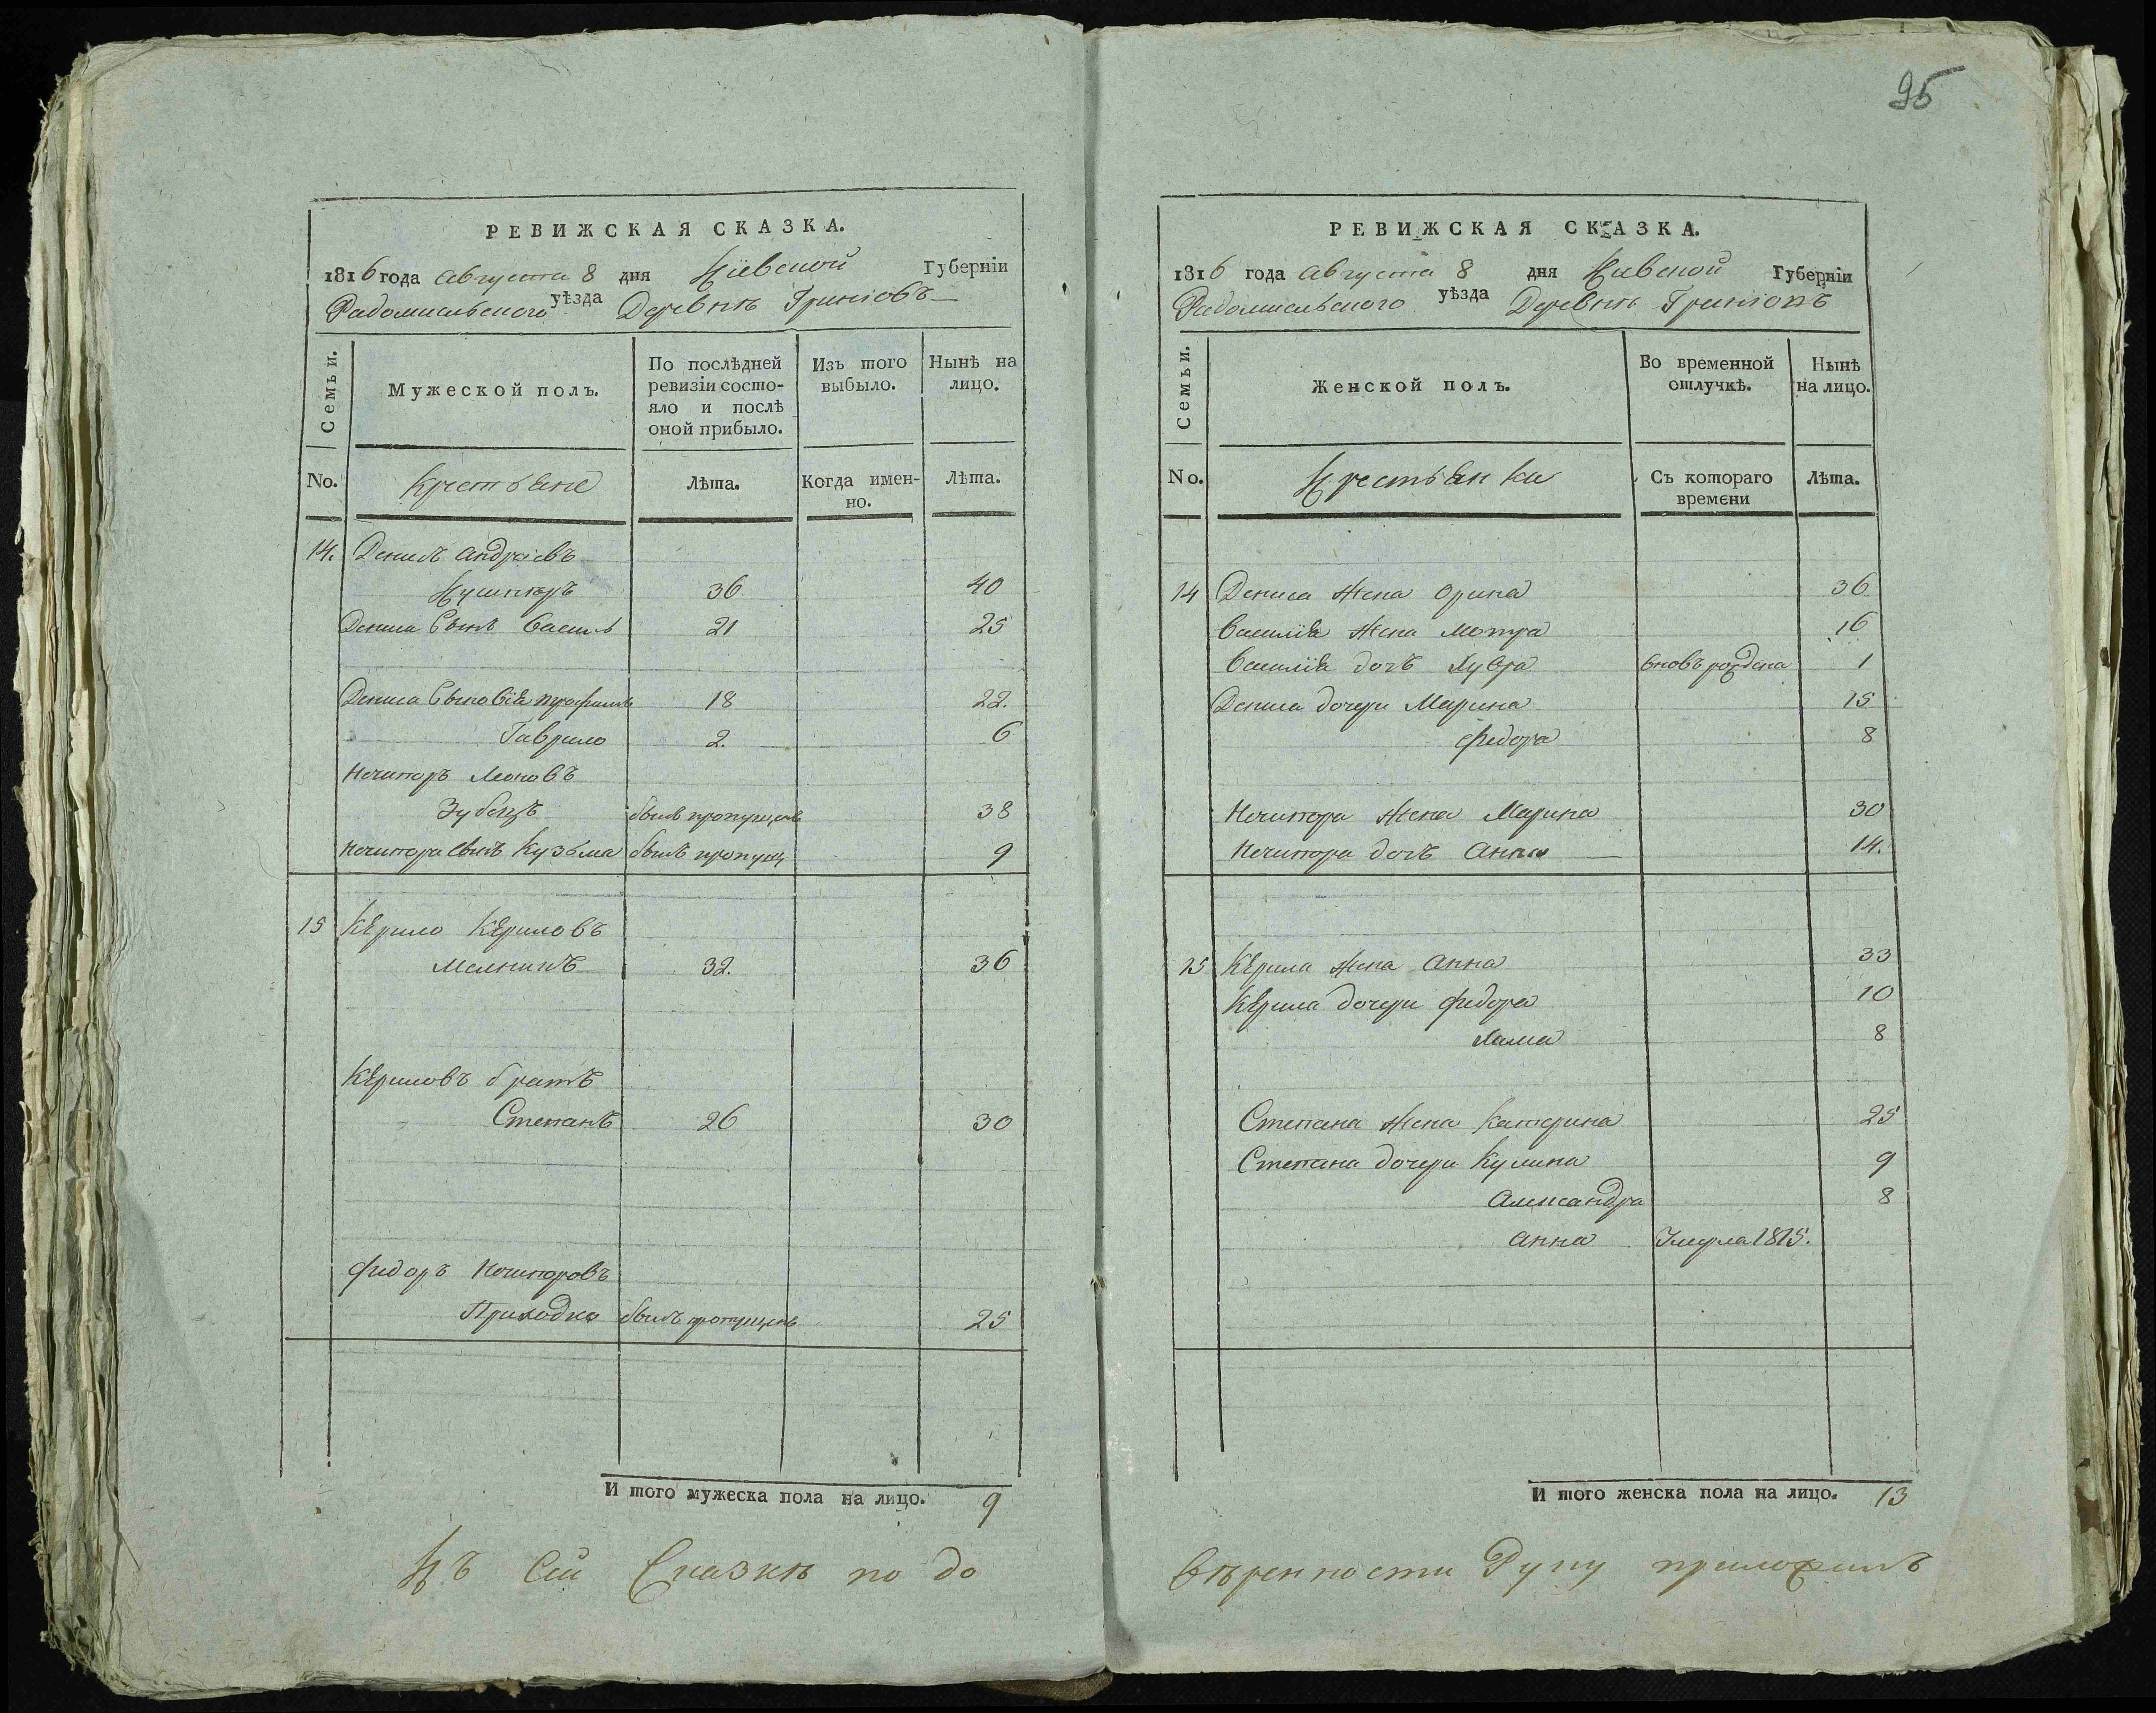 РЕВИЖСКАЯ СКАЗКА.
1816 года Августа 8 дня Кіевской Губерніи
Радомисльского уѣзда Деревнѣ
Семьи. Мужеской полъ. По послѣдней ревизіи состояло и послѣ оной прибыло. Изъ того выбыло. Нынѣ на лицо.
No. Крестьяне Лѣта. Когда именно. Лѣта.
14. Денисъ Андрѣевъ
Кушнѣръ 36 40
Дениса Сынъ Василь 21 25
Дениса Сыновія Трофимъ 18 22.
Гаврило 2. 6
Ничипоръ Леоновъ
Зубецъ былъ пропущенъ 38
Ничипора Сынъ Кузьма былъ пропущ 9
15 Кѣрило Кѣриловъ
Мелникъ 32. 36
Кѣриловъ братъ
Степанъ 26 30
Федоръ Ничипоровъ
Приходко былъ пропущенъ 25
И того мужеска пола на лицо. 9
Къ Сей Сказкѣ по до
95
РЕВИЖСКАЯ СКАЗКА.
1816 года Августа 8 дня Киевской Губерніи
Радомисльского уѣзда Деревнѣ
Семьи. Женской полъ. Во временной отлучкѣ. Нынѣ на лицо.
No. Крестьянки Съ котораго времени Лѣта.
14 Дениса Жена Орина 36
Василія Жена Мотра 16
Василія дочъ вновь рождена 1
Дениса дочери Марина 15
Федора 8
Ничипора Жена Марина 30
Ничипора дочъ Анна 14.
15 Кѣрила Жена Анна 33
Кѣрила дочери Федора 10
8
Степана Жена Катерина 25
Степана дочери Кулина 9
Александра 8
Анна Умерла 1815.
И того женска пола на лицо. 13
вѣренности Руку приложилъ